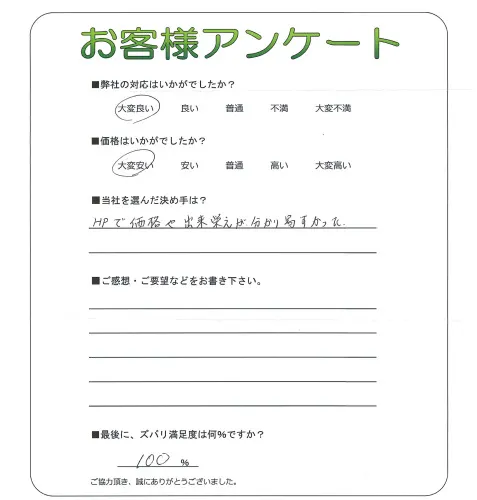 お客様アンケート
■弊社の対応はいかがでしたか？
大変良い 良い 普通 不満 大変不満
■価格はいかがでしたか？
大変安い 安い 普通 高い 大変高い
■当社を選んだ決め手は？
HPで価格や出来栄えが分かり易すかった
■ご感想・ご要望などをお書き下さい。
■最後に、ズバリ満足度は何%ですか？
100 %
ご協力頂き、誠にありがとうございました。